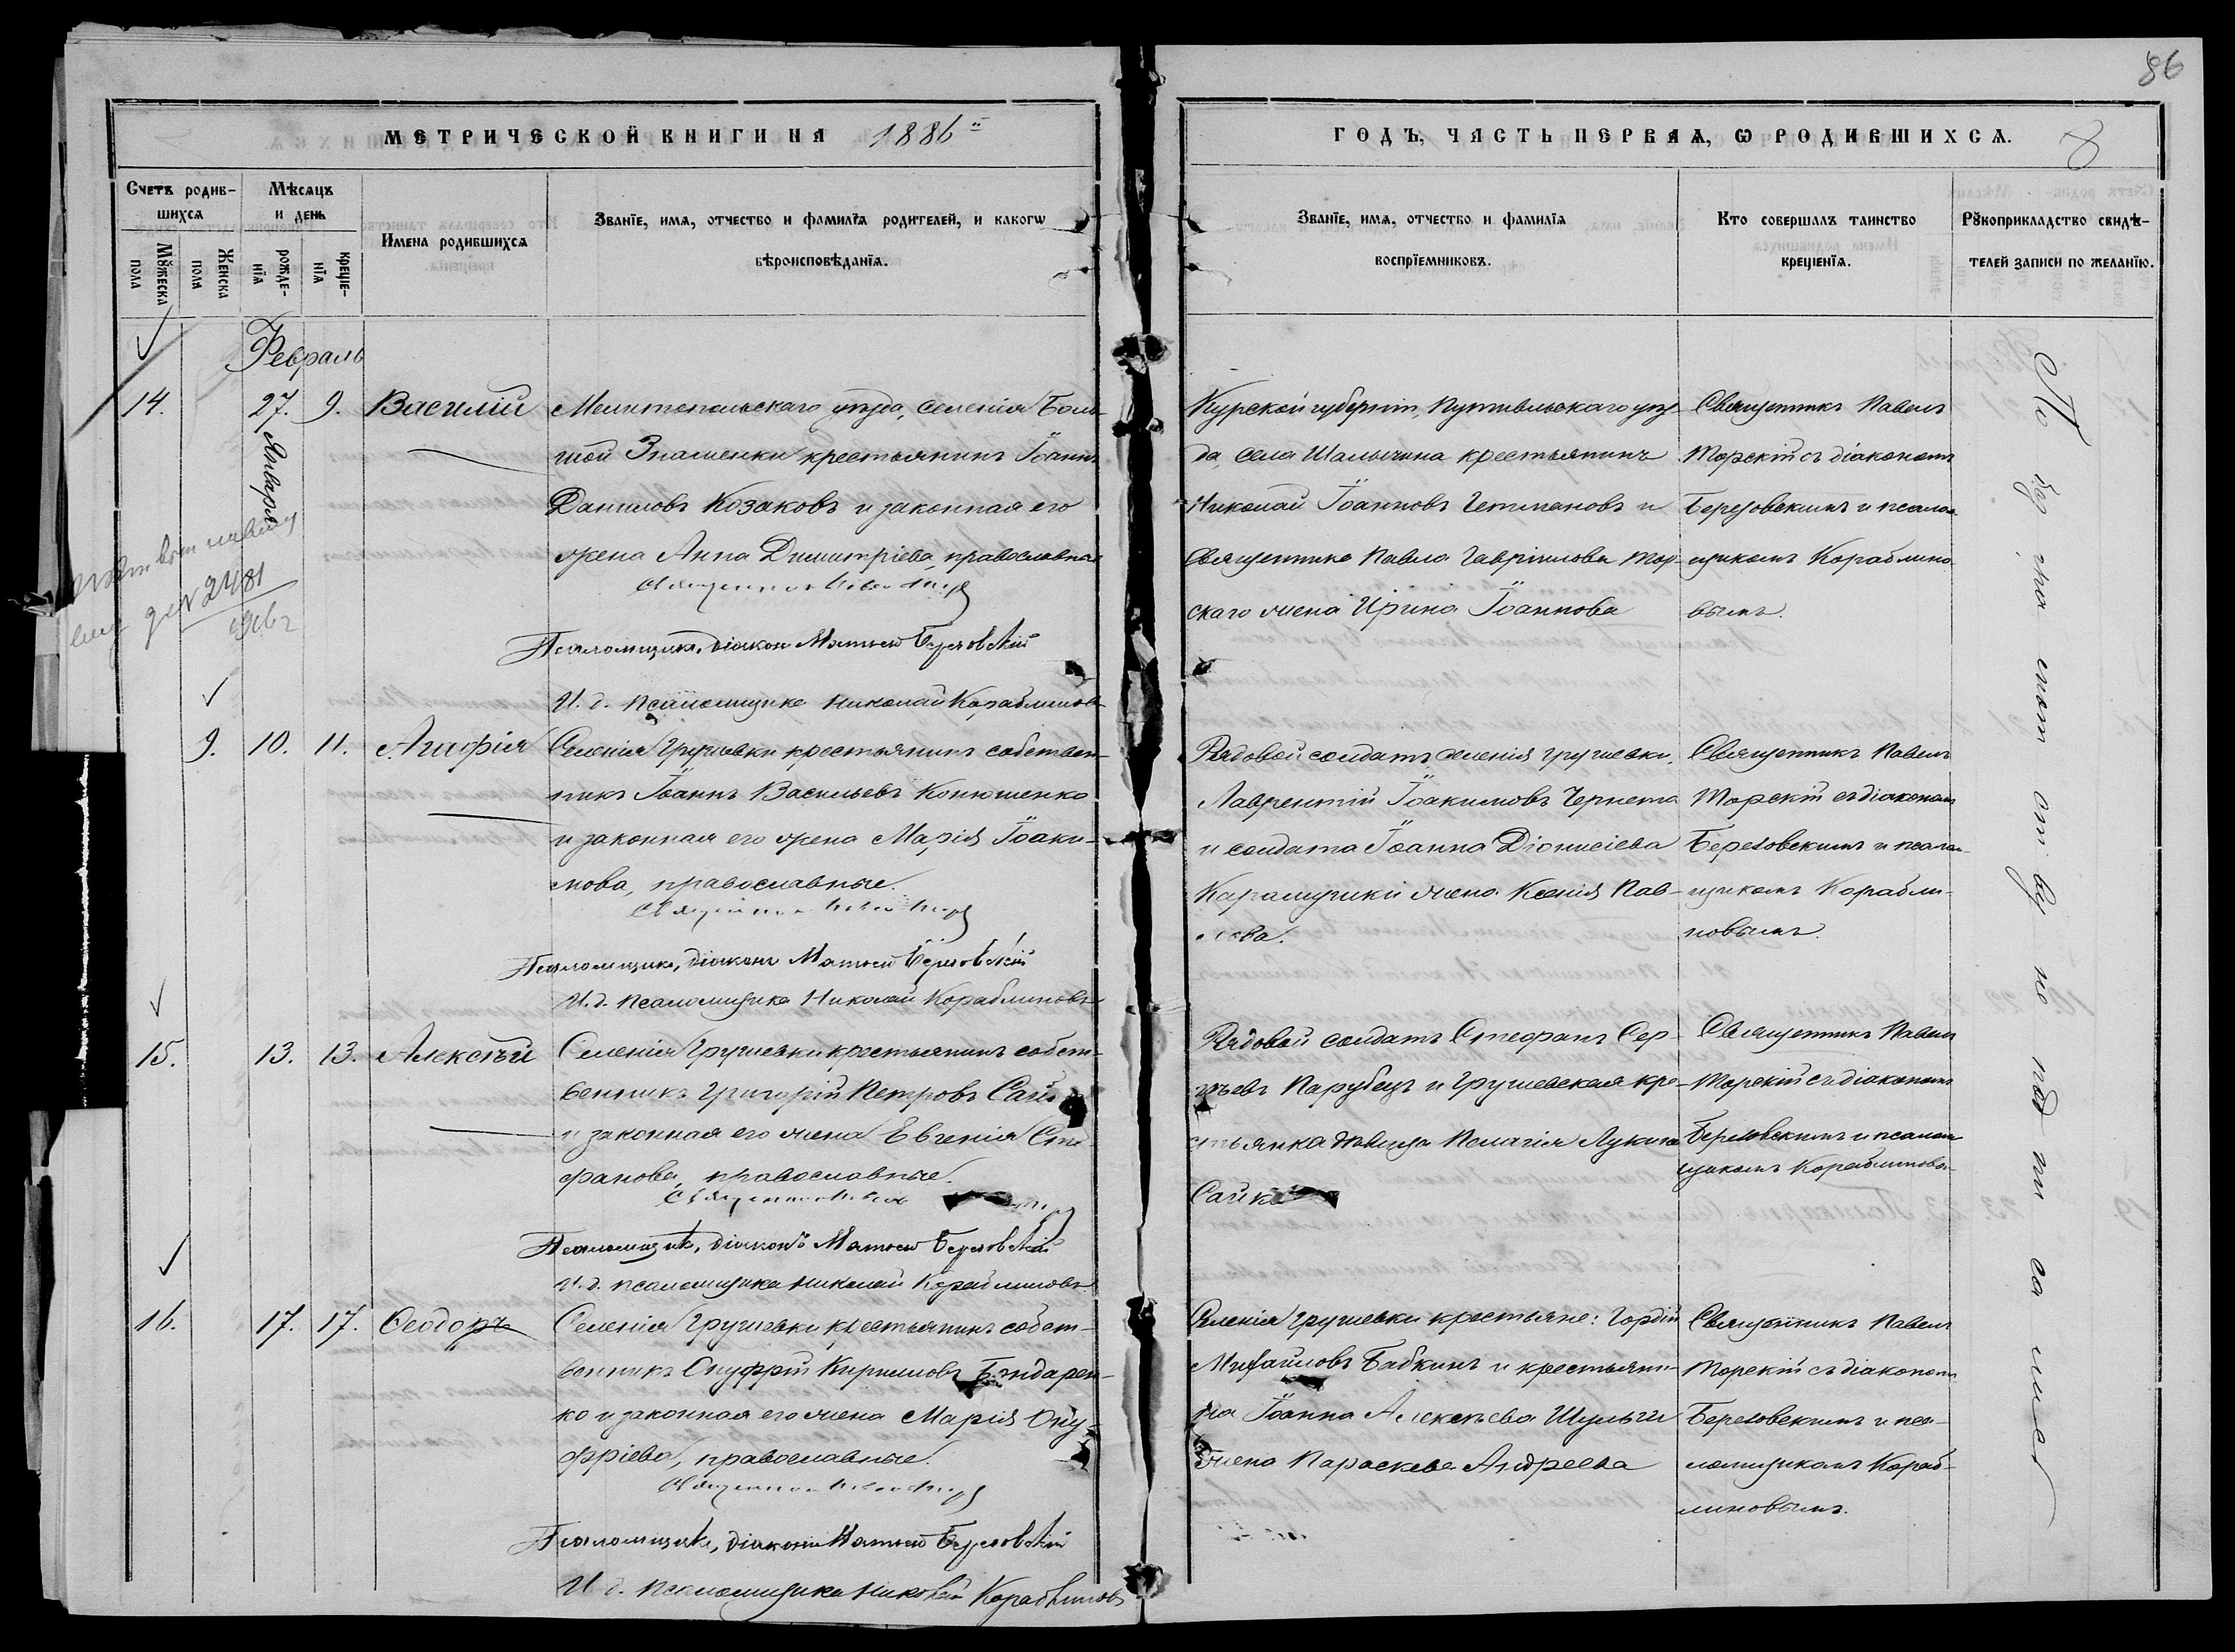 86
МЕТРИЧЕСКОЙ КНИГИ НА 1886й
ГОДЪ, ЧАСТЬ ПЕРВАЯ, Ѡ РОДИВШИХСѦ.
8
Счетъ родив-
шихсѧ
Мѣсяцъ
и день
Мꙋжеска
пола
Женска
пола
рожде-
нїѧ
креще-
нїѧ
Имена родившихсѧ
Званїе, имѧ, отчество и фамилїѧ родителей, и какогѡ
вѣроисповѣданїѧ.
Званїе, имѧ, отчество и фамилїѧ
воспрїемниковъ.
Кто совершалъ таинство
крещенїѧ.
Рꙋкоприкладство свидѣ-
телей записи по желанїю.
Февраль
14.
27. Января
9.
Василій
Мелитопольскаго уѣзда, селенія Боль-
шой Знаменки крестьянинъ Іоаннъ
Даниловъ Козаковъ и законная его
жена Анна Димитріева, православные
Псаломщикъ, діаконъ Матѳей Березовскій
И. д. псаломщика Николай Кораблиновъ
Курской губерніи, Путивльскаго уѣз-
да, села Шалыгина крестьянинъ
Николай Іоанновъ Гетмановъ и
Священника Павла Гавріилова Мор-
скаго жена Ирина Іоаннова
Священникъ Павелъ
Морскій съ діакономъ
Березовскимъ и псалом-
щикомъ Кораблино-
вымъ.
№ 2481
9.
10.
11.
Агафія
Селенія Грушевки крестьянинъ собствен-
никъ Іоаннъ Васильевъ Конюшенко
и законная его жена Марія Іоаки-
мова, православные.
Псаломщикъ, діаконъ Матѳей Березовскій
И. д. псаломщика Николай Кораблиновъ
Рядовой солдатъ селенія Грушевки,
Лаврентій Іоакимовъ Чернета
и солдата Іоанна Діонисіева
жена Ксенія Пав-
лова.
Священникъ Павелъ
Морскій съ діакономъ
Березовскимъ и псалом-
щикомъ Корабли-
новымъ.
15.
13.
13.
Алексѣй
Селенія Грушевки крестьянинъ собст-
венникъ Григорій Петровъ Сайко
и законная его жена Евгенія Сте-
фанова, православные.
Псаломщикъ, діаконъ Матѳей Березовскій
И. д. псаломщика Николай Кораблиновъ
Рядовой солдатъ Стефанъ Сер-
гѣевъ Парубецъ и Грушевская кре-
стьянка дѣвица Пелагія Лукина
Сайко
Священникъ Павелъ
Морскій съ діакономъ
Березовскимъ и псалом-
щикомъ Кораблиновы
16.
17.
17.
Ѳеодоръ
Селенія Грушевки крестьянинъ собст-
венникъ Онуфрій Кирилловъ Бондарен-
ко и законная его жена Марія Ону-
фріева, православные.
Псаломщикъ, діаконъ Матѳей Березовскій
И. д. псаломщика Николай Кораблиновъ
Селенія Грушевки крестьяне: Гордій
Михайловъ Бабкинъ и крестьяни-
на Іоанна Алексѣева Шульги
жена Параскева Андреева
Священникъ Павелъ
Морскій съ діакономъ
Березовскимъ и пса-
ломщикомъ Кораб-
линовымъ.